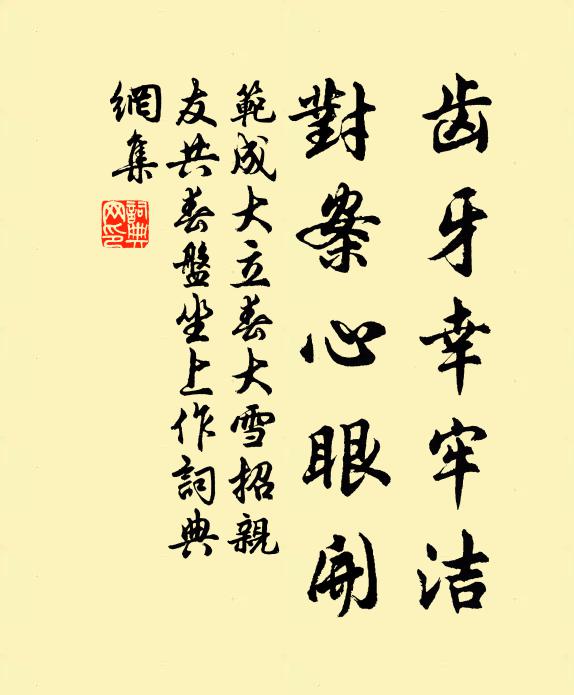 齿牙幸牢洁
對案心眼開
範成大立春大雪招親
友共春盤坐上作詞典
網集
詞典網印